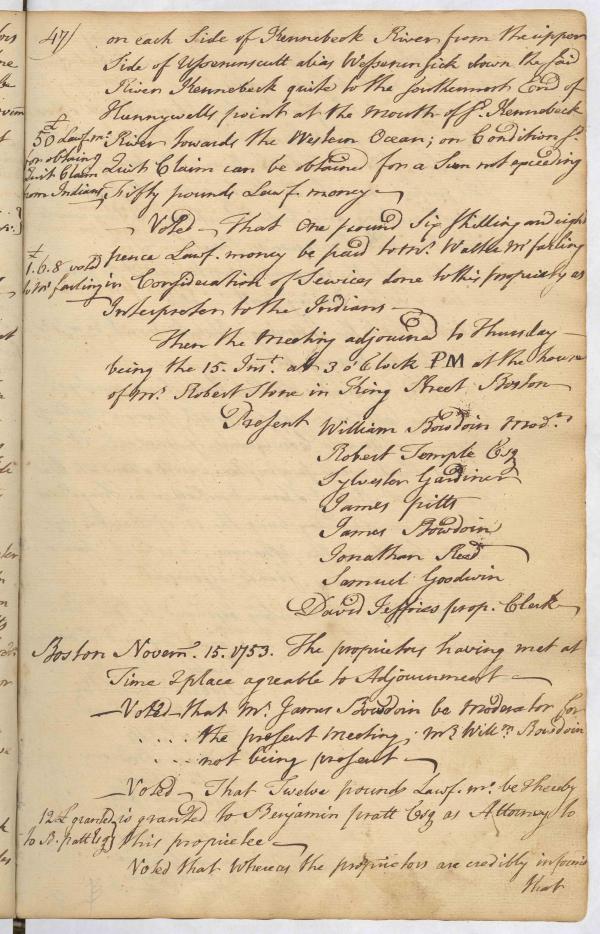 47/
on each Side of Kennebeck River from the upper
Side of Usserunscutt alias Wesserunsick down the said
River Kennebeck quite to the Southermost End of
Hunnywells point at the mouth of sd. Kennebeck
River towards the Western Ocean; on Condition sd.
Quit Claim can be obtained for a Sum not exceeding
Fifty pounds Lawf. money
£
50 Lawf. mo.
for obtaing
Quit Claim
from Indians
Voted That one pound Six Shilling and eight
pence Lawf. money be paid to Mr. Walter Mcfarling
in Consideration of Services done to this propriety as
Interpreter to the Indians
£
1.6.8 voted
to Mcfarling
Then the Meeting adjourned to Thursday
being the 15. Inst. at 3 o'Clock PM at the house
of Mr. Robert Stone in King Street Boston
Present William Bowdoin Modr.
Robert Temple Esq
Sylvester Gardiner
James Pitts
James Bowdoin
Jonathan Reed
Samuel Goodwin
David Jeffries prop. Clerk
Boston Novemr. 15. 1753. The proprietors having met at
Time & place agreable to Adjournment
Voted that Mr. James Bowdoin be moderator for
.... the present meeting, Mr. Willm. Bowdoin
... not being present
Voted That Twelve pounds Lawf. mo. be & hereby
is granted to Benjamin pratt Esq as Attorney to
this proprietee
12£ granted
to B. pratt Esq
Voted that Whereas the proprietors are credibly informd
that